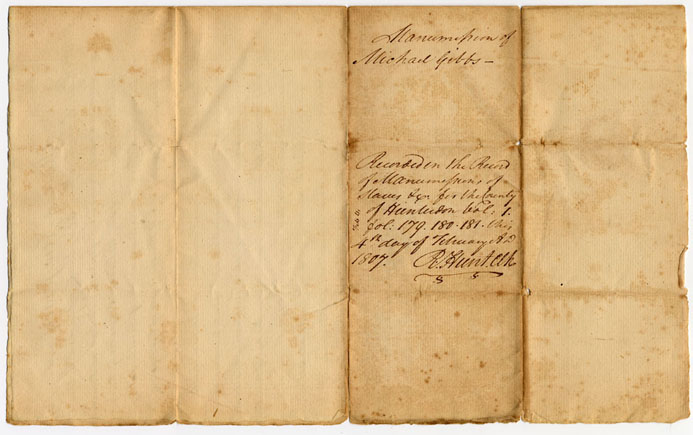 Manumission of
Michael Gibbs —
Recorded in the Record
of Manumissions of
Slaves &c. for the County
of Hunterdon Vol. 1.
fol: 179. 180. 181. this
4th day of February AD
1807. R. Hunt Clk